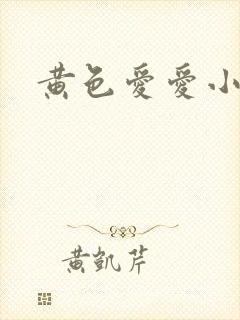 黄色愛愛小
黄凱芹